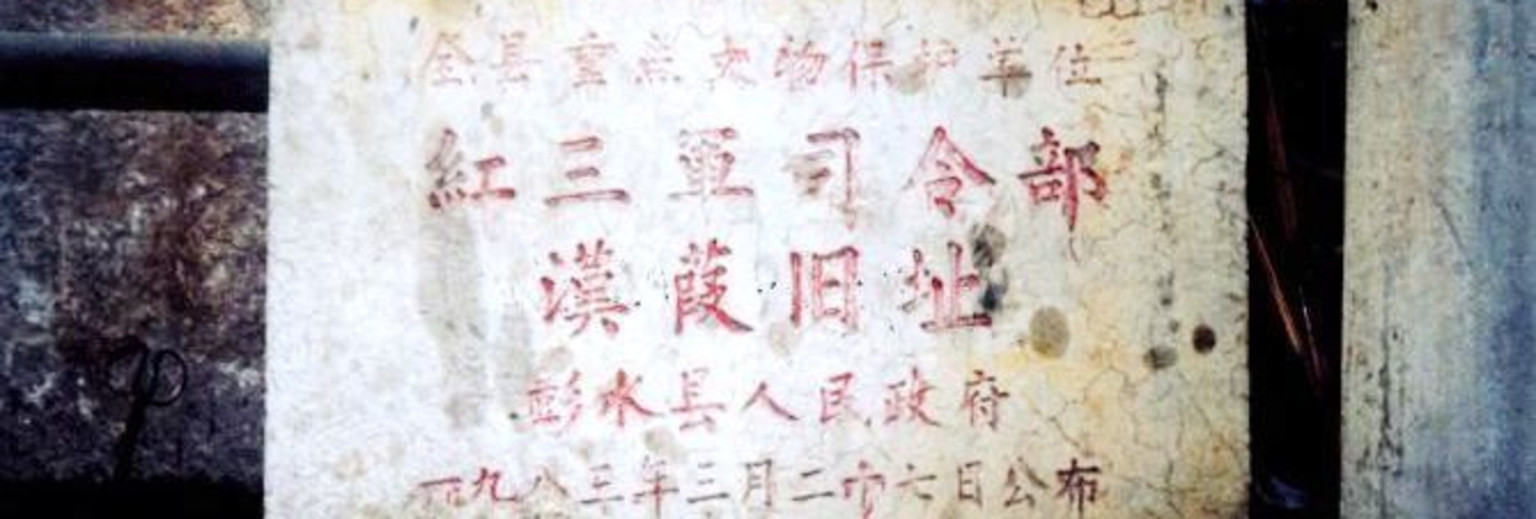 全县重点文物保护单位
紅三軍司令部
漢葭旧址
彭水县人民政府
一九八三年三月二十七日公布